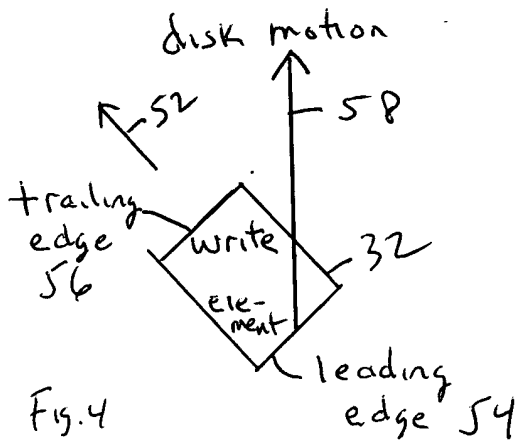 disk motion
52
58
trailing
edge
56
write
ele-
ment
32
leading
edge 54
Fig. 4